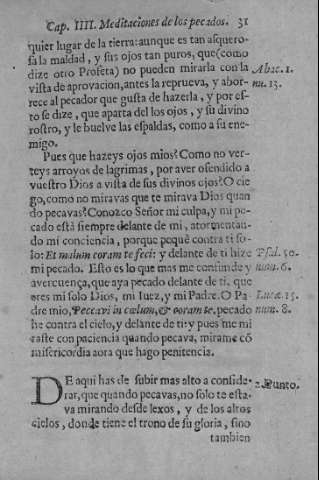 Cap. IIII. Meditaciones de los pecados. 31
quier lugar de la tierra: aunque es tan asquero-
sa la maldad, y sus ojos tan puros, que (como
dize otro Profeta) no pueden mirarla con la Abac. 1.
vista de aprovacion, antes la reprueva, y abor- nu. 13.
rece al pecador que gusta de hazerla, y por es-
to se dize, que aparta del los ojos, y su divino
rostro, y le buelve las espaldas, como a su ene-
migo.
Pues que hazeys ojos mios? Como no ver-
teys arroyos de lagrimas, por aver ofendido a
vuestro Dios a vista de sus divinos ojos? O cie
go, como no miravas que te mirava Dios quan
do pecavas? Conozco Señor mi culpa, y mi pe-
cado está siempre delante de mi, atormentan-
do mi conciencia, porque pequè contra ti so-
lo: Et malum coram te feci: y delante de ti hize Psal. 50.
mi pecado. Esto es lo que mas me confunde y num. 6.
averguença, que aya pecado delante de ti, que
eres mi solo Dios, mi Iuez, y mi Padre. O Pa- Lucæ. 15.
dre mio, Peccavi in cœlum, & coram te, pecado num. 8.
he contra el cielo, y delante de ti: y pues me mi
raste con paciencia quando pecava, mirame cõ
misericordia aora que hago penitencia.
DE aqui has de subir mas alto a conside- 2. Punto.
rar, que quando pecavas, no solo te esta-
va mirando desde lexos, y de los altos
cielos, donde tiene el trono de su gloria, sino
tambien